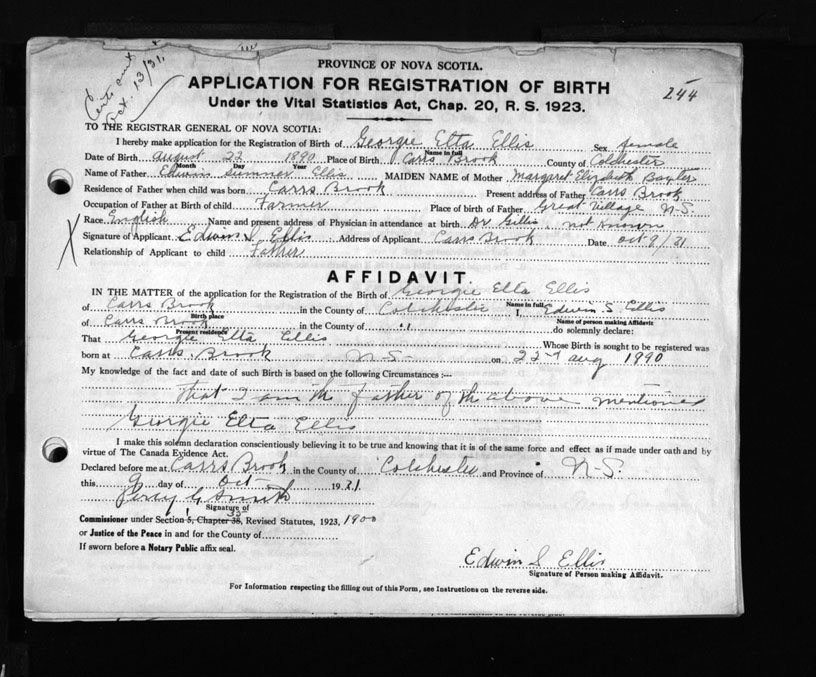 Certs sent
Oct. 13/31.
244
PROVINCE OF NOVA SCOTIA.
APPLICATION FOR REGISTRATION OF BIRTH
Under the Vital Statistics Act, Chap. 20, R. S. 1923.
TO THE REGISTRAR GENERAL OF NOVA SCOTIA:
I hereby make application for the Registration of Birth of Georgie Etta Ellis Sex female
Name in full
Date of Birth August 22 1890 Place of Birth Carrs Brook County of Colchester
Month Day Year
Name of Father Edwin Sumner Ellis MAIDEN NAME of Mother Margaret Elizabeth
Residence of Father when child was born Carrs Brook Present address of Father Carrs Brook
Occupation of Father at Birth of child Farmer Place of birth of Father Great Village N.S.
Race English Name and present address of Physician in attendance at birth Dr Gillis, not known
Signature of Applicant Edwin S Ellis Address of Applicant Carrs Brook Date Oct 9/31
X
Relationship of Applicant to child Father
AFFIDAVIT.
IN THE MATTER of the application for the Registration of the Birth of Georgie Etta Ellis
Name in full
of Carrs Brook in the County of Colchester I, Edwin S Ellis
Birth place Name of person making Affidavit
of Carrs Brook in the County of " do solemnly declare:
Present residence
That Georgie Etta Ellis Whose Birth is sought to be registered was
born at Carrs Brook N-S- on 22nd Aug 1890
My knowledge of the fact and date of such Birth is based on the following Circumstances :—
that I am the father of the above mentioned
Georgie Etta Ellis
I make this solemn declaration conscientiously believing it to be true and knowing that it is of the same force and effect as if made under oath and by
virtue of The Canada Evidence Act.
Declared before me at Carrs Brook in the County of Colchester and Province of N-S.
this 9 day of Oct 1931
Percy G Smith
Signature of
Commissioner under Section 5, Chapter 38, Revised Statutes, 1923, 1900
or Justice of the Peace in and for the County of
If sworn before a Notary Public affix seal.
Edwin S Ellis
Signature of Person making Affidavit.
For Information respecting the filling out of this Form, see Instructions on the reverse side.